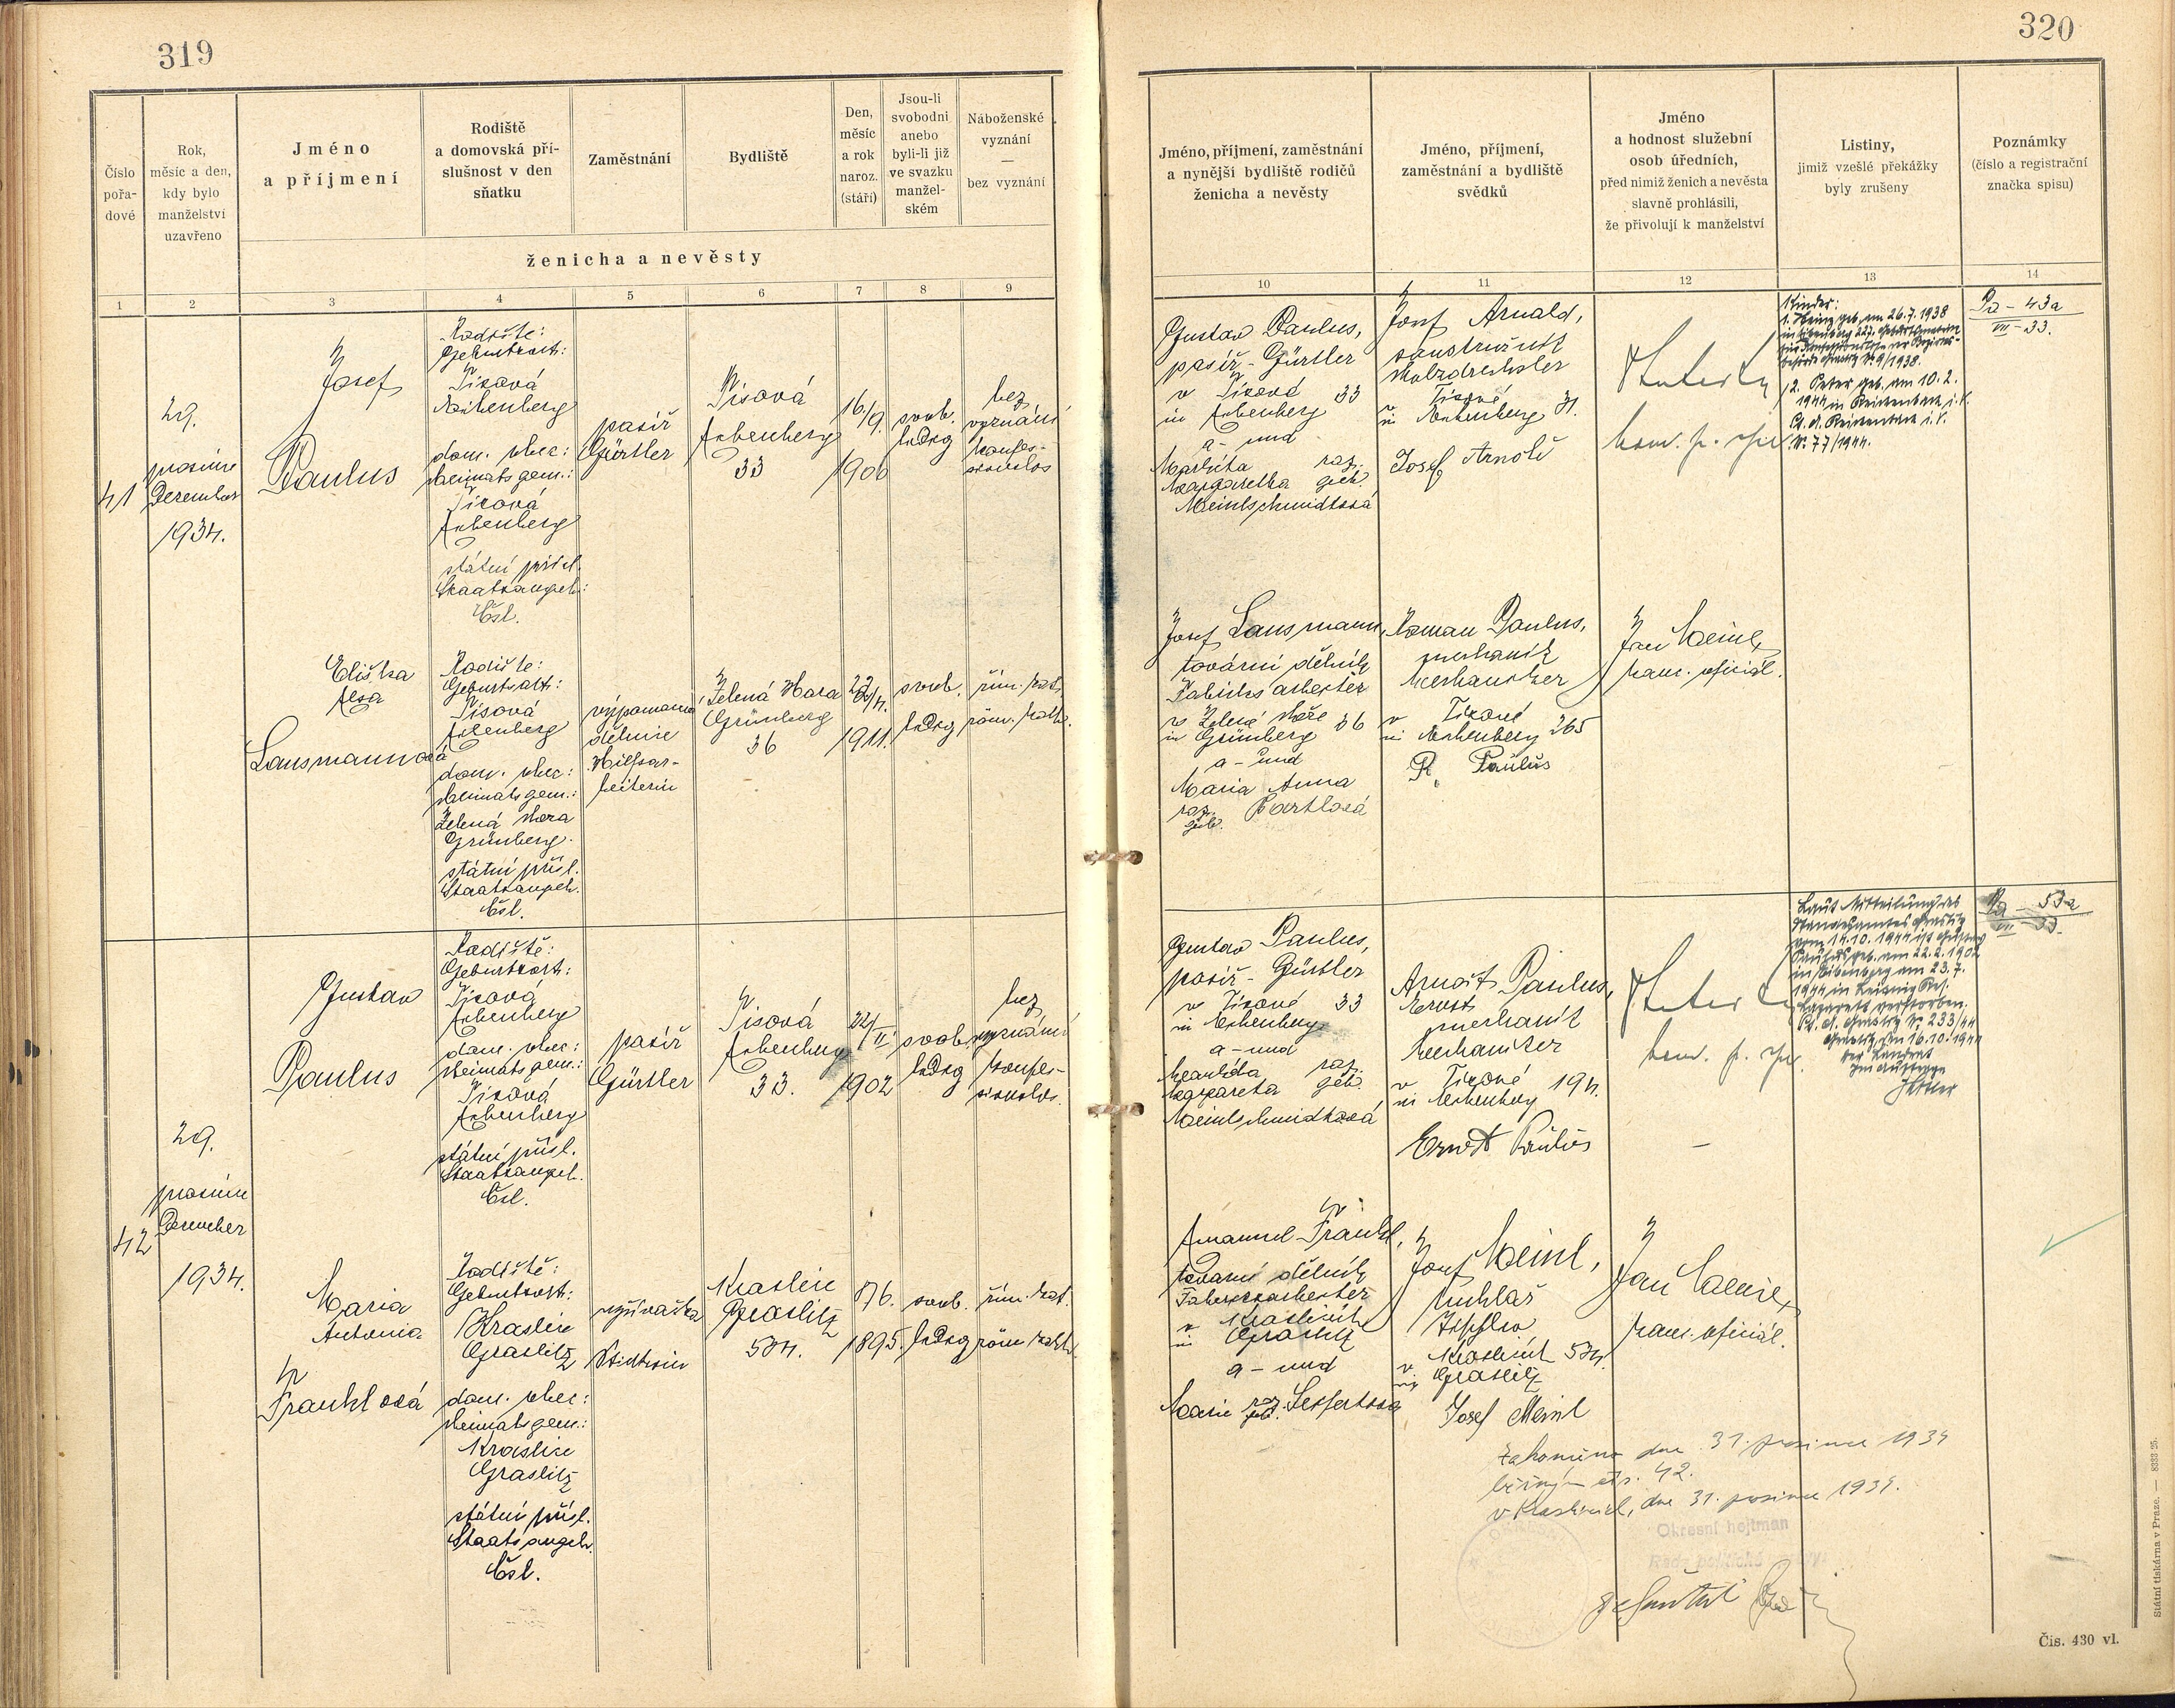 319
Číslo
pořa-
dové
Rok,
měsíc a den,
kdy bylo
manželství
uzavřeno
Jméno
a příjmení
Rodiště
a domovská pří-
slušnost v den
sňatku
Zaměstnání
Bydliště
Den,
měsíc
a rok
naroz.
(stáří)
Jsou-li
svobodni
anebo
byli-li již
ve svazku
manžel-
ském
Náboženské
vyznání
—
bez vyznání
ženicha a nevěsty
1
2
3
4
5
6
7
8
9
41
29.
prosince
Dezember
1934.
Josef
Paulus
Rodiště:
Geburtsort:
Tisová
Eibenberg
dom. obec:
Heimatsgem.:
Tisová
Eibenberg
státní přísl.
Staatsangeh.:
Čsl.
pasíř
Gürtler
Tisová
Eibenberg
33
16./9.
1906
svob.
ledig
bez
vyznání
konfes-
sionslos
Eliška
Elsa
Lausmannová
Rodiště:
Geburtsort:
Tisová
Eibenberg
dom. obec:
Heimatsgem.:
Zelená Hora
Grünberg.
státní přísl.
Staatsangeh.
Čsl.
výpomocná
dělnice
Hilfsar-
beiterin
Zelená Hora
Grünberg
36
1911.
svob.
ledig
řím. kat.
röm. kath.
42
29.
prosince
Dezember
1934.
Gustav
Paulus
Rodiště:
Geburtsort:
Tisová
Eibenberg
dom. obec:
Heimatsgem.:
Tisová
Eibenberg
státní přísl.
Staatsangeh.
Čsl.
pasíř
Gürtler
Tisová
Eibenberg
33.
22/II
1902
svob.
ledig
bez
vyznání
konfes-
sionslos.
Maria
Antonia
Fränklová
Rodiště:
Geburtsort:
Kraslice
Graslitz
dom. obec:
Heimatsgem.:
Kraslice
Graslitz
státní přísl.
Staatsangeh.
Čsl.
vyšívačka
Stickerin
Kraslice
Graslitz
534.
1895.
svob.
ledig
řím. kat.
röm. kath.
320
Jméno, příjmení, zaměstnání
a nynější bydliště rodičů
ženicha a nevěsty
Jméno, příjmení,
zaměstnání a bydliště
svědků
Jméno
a hodnost služební
osob úředních,
před nimiž ženich a nevěsta
slavně prohlásili,
že přivolují k manželství
Listiny,
jimiž vzešlé překážky
byly zrušeny
Poznámky
(číslo a registrační
značka spisu)
10
11
12
13
14
Gustav Paulus,
pasíř - Gürtler
v Tisové 33
in Eibenberg
a - und
Markéta roz.
Margaretha geb.
Meinlschmidtová
Josef Arnold,
soustružník
Holzdrechsler
v Tisové
in Eibenberg 31.
Josef Arnold
Kinder:
1. Heinz geb. am 26.7.1938
2. Peter geb. am 10.2.
1944 in Reichenbach i. V.
St. A. Reichenbach i. V.
Nr. 77/1944.
Pa - 43a
VII - 33.
Josef Lausmann,
tovární dělník
Fabriksarbeiter
v Zelené Hoře 36
in Grünberg
a - und
Maria Anna
roz. Bartlová
geb.
Roman Paulus,
mechanik
Mechaniker
v Tisové
in Eibenberg 265
R. Paulus
Jan Meinl
kanc. oficiál.
Gustav Paulus,
pasíř - Gürtler
v Tisové 33
in Eibenberg
a - und
Markéta roz.
Margareta geb.
Meinlschmidtová
Arnošt Paulus,
Ernst
mechanik
Mechaniker
v Tisové 194.
in Eibenberg
Ernst Paulus
—
Laut Mitteilung des
Standesamtes Graslitz
vom 14.10.1944 ist Gustav
Paulus geb. am 22.2.1902
in Eibenberg am 23.7.
1944 in Leipzig Res.
Lazarett verstorben.
St. A. Graslitz Nr. 233/44
Graslitz, den 16.10.1944
Der Landrat
Im Auftrage
Pa - 53a
VII - 33.
Emanuel Fränkl,
tovární dělník
Fabriksarbeiter
v Kraslicích
in Graslitz
a - und
Marie roz. Seifertová
geb.
Josef Meinl,
truhlář
Tischler
v Kraslicích 534.
in Graslitz
Josef Meinl
Jan Meinl
kanc. oficiál.
Zakončeno dne 31. prosince 1934
běžným čís. 42.
v Kraslicích, dne 31. prosince 1934.
Okresní hejtman
Rada politické správy
Státní tiskárna v Praze. — 8333 25.
Čís. 430 vl.